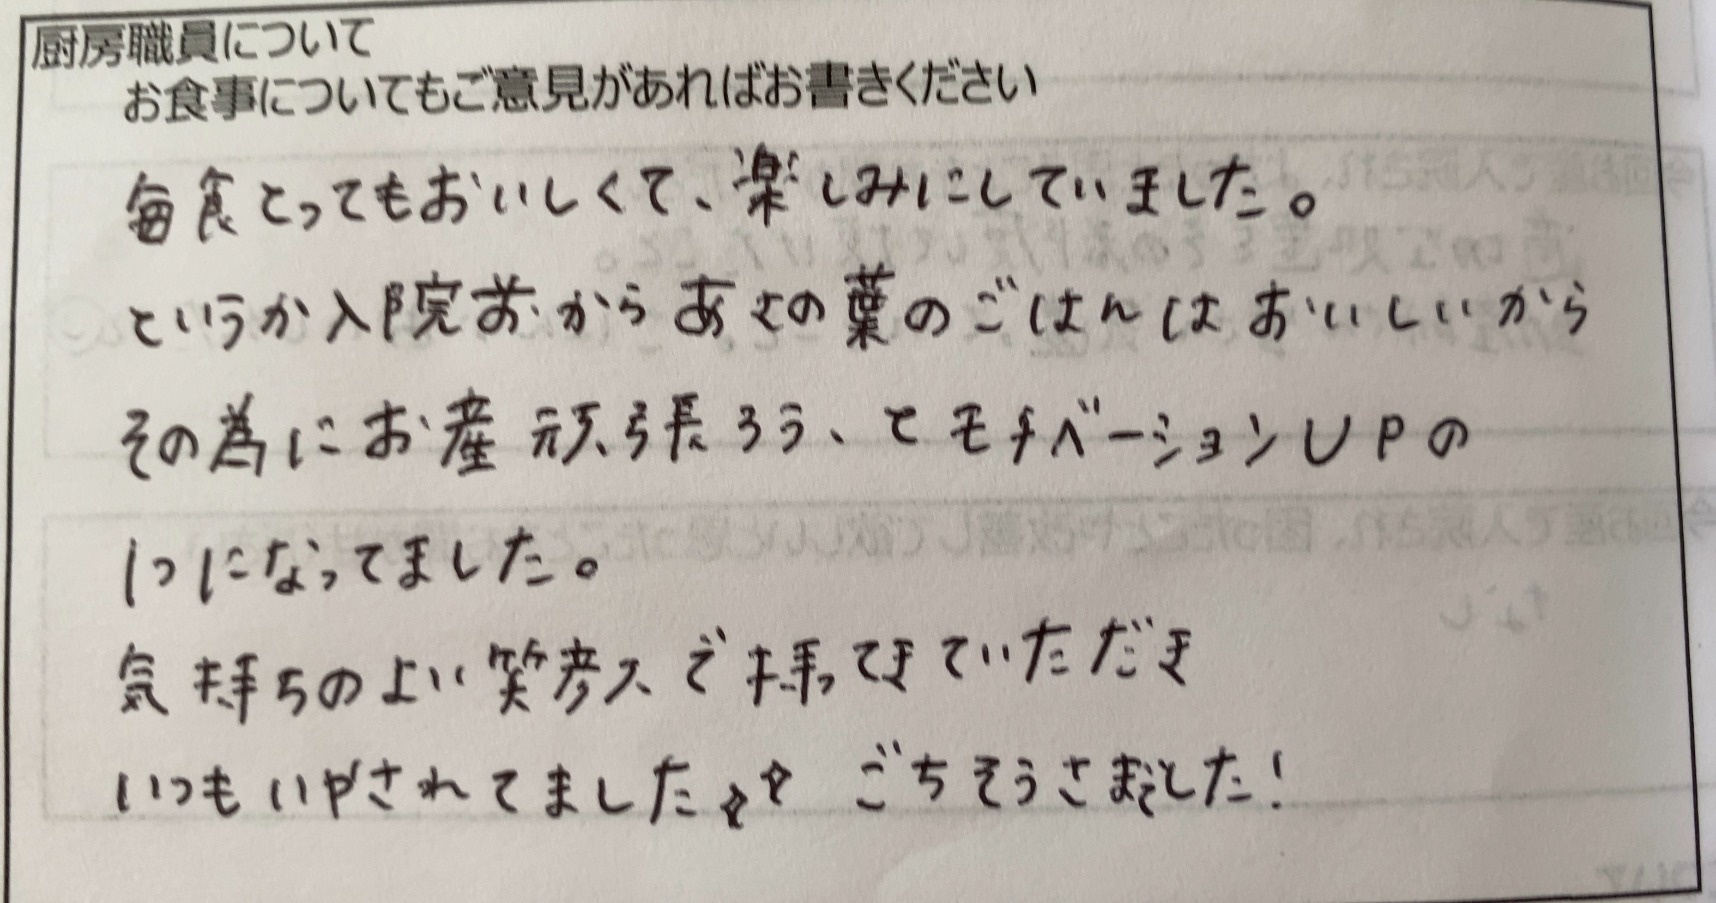 厨房職員について
お食事についてもご意見があればお書きください
毎食とってもおいしくて、楽しみにしていました。
というか入院前からあさの葉のごはんはおいしいから
その為にお産頑張ろう、とモチベーションUPの
1つになってました。
気持ちのよい笑顔で持ってきていただき
いつもいやされてました♪♪ ごちそうさまでした!